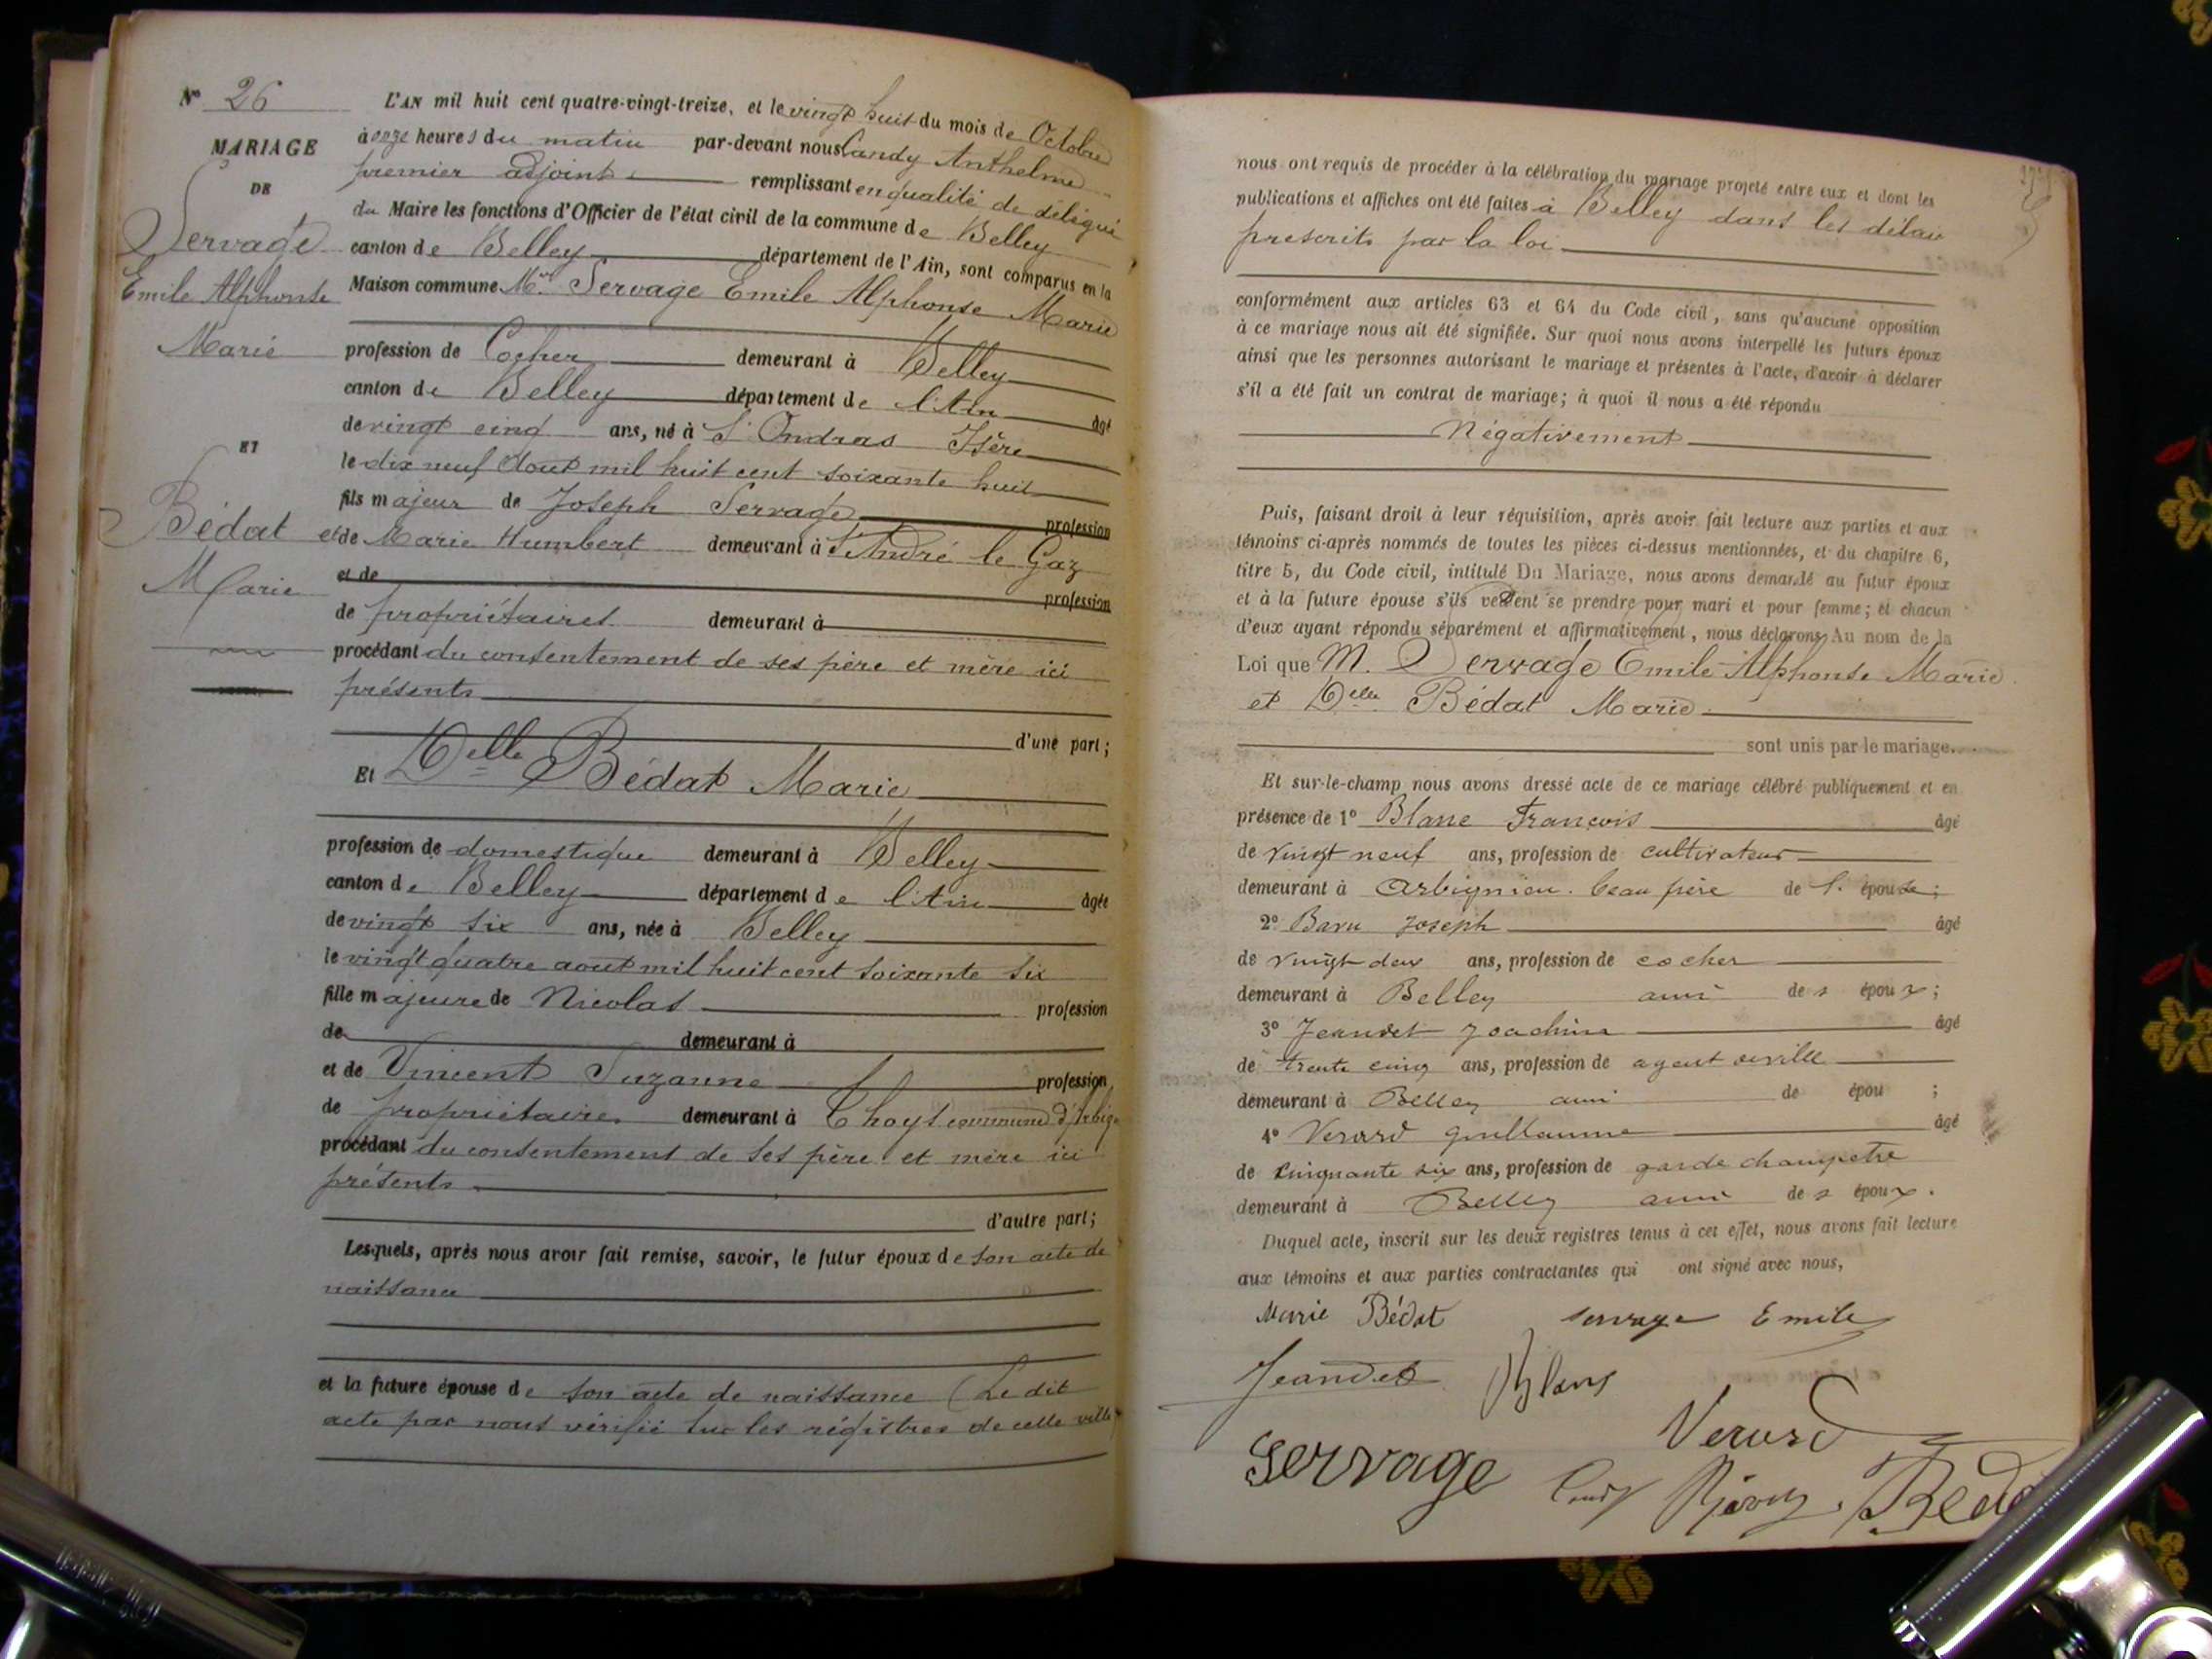 N° 26
MARIAGE
DE
Servage
Emile Alphonse
Marie
ET
Bédat
Marie
L'AN mil huit cent quatre-vingt-treize, et le vingt huit du mois de Octobre
à onze heures du matin par-devant nous Candy Anthelme
premier adjoint remplissant en qualité de délégué
du Maire les fonctions d'Officier de l'état civil de la commune de Belley
canton de Belley département de l'Ain, sont comparus en la
Maison commune Mr Servage Emile Alphonse Marie
profession de Cocher demeurant à Belley
canton de Belley département de l'Ain âgé
de vingt cinq ans, né à St Ondras Isère
le dix neuf Aout mil huit cent soixante huit
fils majeur de Joseph Servage profession
et de Marie Humbert demeurant à St André le Gaz
et de profession
de propriétaires demeurant à
procédant du consentement de ses père et mère ici
présents
d'une part;
Et Delle Bédat Marie
profession de domestique demeurant à Belley
canton de Belley département de l'Ain âgée
de vingt six ans, née à Belley
le vingt quatre aout mil huit cent soixante six
fille majeure de Nicolas profession
de demeurant à
et de Vincent Suzanne profession
de propriétaires demeurant à Thoys commune d'Arbig
procédant du consentement de ses père et mère ici
présents
d'autre part;
Lesquels, après nous avoir fait remise, savoir, le futur époux de son acte de
naissance
et la future épouse de son acte de naissance (Le dit
acte par nous vérifié sur les régistres de cette ville
nous ont requis de procéder à la célébration du mariage projeté entre eux et dont les
publications et affiches ont été faites à Belley dans les délais
prescrits par la loi
conformément aux articles 63 et 64 du Code civil, sans qu'aucune opposition
à ce mariage nous ait été signifiée. Sur quoi nous avons interpellé les futurs époux
ainsi que les personnes autorisant le mariage et présentes à l'acte, d'avoir à déclarer
s'il a été fait un contrat de mariage; à quoi il nous a été répondu
Négativement
Puis, faisant droit à leur réquisition, après avoir fait lecture aux parties et aux
témoins ci-après nommés de toutes les pièces ci-dessus mentionnées, et du chapitre 6,
titre 5, du Code civil, intitulé Du Mariage, nous avons demandé au futur époux
et à la future épouse s'ils veulent se prendre pour mari et pour femme; et chacun
d'eux ayant répondu séparément et affirmativement, nous déclarons Au nom de la
Loi que M. Servage Emile Alphonse Marie
et Delle Bédat Marie
sont unis par le mariage.
Et sur-le-champ nous avons dressé acte de ce mariage célébré publiquement et en
présence de 1° Blanc François âgé
de vingt neuf ans, profession de cultivateur
demeurant à Arbignieu beau frère de l'épouse;
2° Baru Joseph âgé
de vingt deux ans, profession de cocher
demeurant à Belley ami des époux;
3° Jeandet Joachim âgé
de trente cinq ans, profession de agent de ville
demeurant à Belley ami de épou ;
4° Verard Guillaume âgé
de cinquante six ans, profession de garde champetre
demeurant à Belley ami des époux.
Duquel acte, inscrit sur les deux registres tenus à cet effet, nous avons fait lecture
aux témoins et aux parties contractantes qui ont signé avec nous,
Marie Bédat Servage Emile
Jeandet Blanc
Verard
Servage Candy Béda